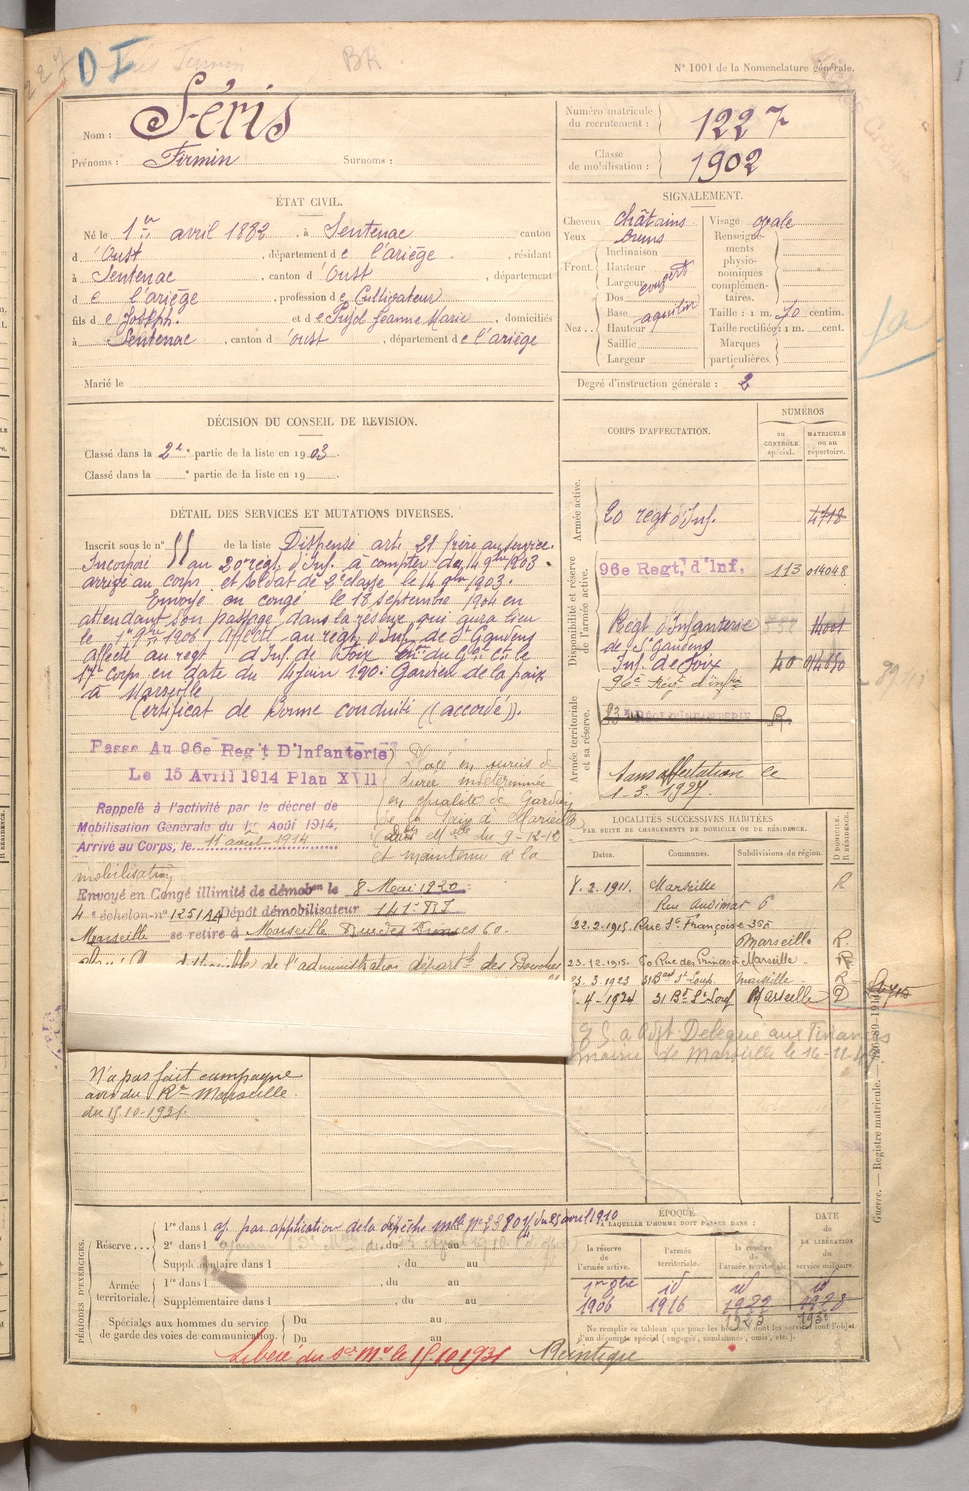 D I
BR
N° 1001 de la Nomenclature générale.
Nom : Séris
Prénoms : Firmin Surnoms :
Numéro matricule du recrutement : 1227
Classe de mobilisation : 1902
ÉTAT CIVIL.
Né le 1er avril 1882, à Sentenac canton
d'Oust, département de l'ariège, résidant
à Sentenac, canton d'Oust, département
de l'ariège, profession de Cultivateur
fils de Joseph. et de Jeanne Marie, domiciliés
à Sentenac, canton d'oust, département de l'ariège
Marié le
SIGNALEMENT.
Cheveux châtains
Yeux bruns
Front. Inclinaison
Hauteur
Largeur
Nez. Dos
Base
Hauteur
Saillie
Largeur
couvert
aquilin
Visage ovale
Renseignements physionomiques complémentaires.
Taille : 1 m. 70 centim.
Taille rectifiée : 1 m. cent.
Marques particulières.
Degré d'instruction générale : 2
DÉCISION DU CONSEIL DE REVISION.
Classé dans la 2e partie de la liste en 1903.
Classé dans la e partie de la liste en 19
DÉTAIL DES SERVICES ET MUTATIONS DIVERSES.
Inscrit sous le n° 55 de la liste Dispensé art. 21 frère au service.
Incorporé au 20e régt d'Inf. à compter du 14 9bre 1903.
arrivé au corps et soldat de 2e classe le 14 9bre 1903.
Envoyé en congé le 18 septembre 1904 en
attendant son passage dans la réserve qui aura lieu
le 1er 9bre 1906. Affecté au régt d'Inf. de St Gaudens
Affecté au regt d'Inf. de Foix du Gal Ct le
17e Corps en date du 14 juin 190 Gardien de la paix
à Marseille
Certificat de Bonne conduite (accordé).
Passe Au 96e Reg't D'Infanterie
Le 15 Avril 1914 Plan XVII
Placé en sursis de
durée indéterminée
en qualité de Gardien
de la Paix à Marseille
du 9-12-12
et maintenu à la
mobilisation
Rappelé à l'activité par le décret de
Mobilisation Générale du 1er Août 1914.
Arrivé au Corps, le 11 août 1914
Envoyé en Congé illimité de démobon le 8 Mai 1920
4e échelon n° 1251 AA Dépôt démobilisateur 141e RI
Marseille se retire à Marseille Rue des Princes 60.
de l'administration départle des Bouches
N'a pas fait campagne
avis du Rt Marseille
du 15.10.1921.
CORPS D'AFFECTATION.
NUMÉROS
AU CONTRÔLE spécial.
MATRICULE ou au répertoire.
Armée active.
20 régt d'Inf. 4718
Disponibilité et réserve de l'armée active.
96e Regt, d'Inf, 113 014048
Régt d'Infanterie
de St Gaudens
Inf. de Foix 40
96e Régt d'Infie
Armée territoriale et sa réserve.
Sans affectation le
1.3.1927.
LOCALITÉS SUCCESSIVES HABITÉES
PAR SUITE DE CHANGEMENTS DE DOMICILE OU DE RÉSIDENCE.
D DOMICILE. R RÉSIDENCE.
Dates. Communes. Subdivisions de région.
8.2.1911. Marseille R
22.2.1915. Rue Ste Françoise 39A
Marseille R.
23.12.1915. 60 Rue des Princes Marseille R
23.3.1923 31 Bard St Loup. Marseille R
4-1924 31 Bd St Loup Marseille D
Délégué aux Finances
mairie de Marseille le 16-11-
Guerre. — Registre matricule. — 426-89-191
PÉRIODES D'EXERCICES.
Réserve... 1re dans l aj. par application de la dépêche mlle N° 23804/4 du 25 avril 1910
2e dans l , du au
Supplémentaire dans l , du au
Armée territoriale. 1re dans l , du au
Supplémentaire dans l , du au
Spéciales aux hommes du service de garde des voies de communication. Du au
Du au
ÉPOQUE
À LAQUELLE L'HOMME DOIT PASSER DANS :
la réserve de l'armée active.
l'armée territoriale.
la réserve de l'armée territoriale.
DATE DE LA LIBÉRATION du service militaire.
1er 9bre id id id
1906 1916 1922 1928
Ne remplir ce tableau que pour les hommes dont les services font l'objet
d'un décompte spécial (engagés, condamnés, omis, etc.).
Libéré du Sce Mre le 15.10.1931